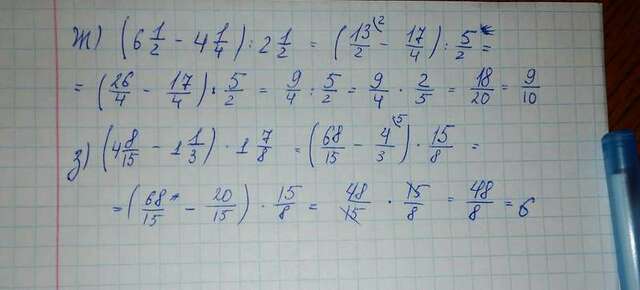 ж) (6 1/2 - 4 1/4) : 2 1/2 = (13/2 (2 - 17/4) : 5/2 =
= (26/4 - 17/4) : 5/2 = 9/4 : 5/2 = 9/4 · 2/5 = 18/20 = 9/10
з) (4 8/15 - 1 1/3) · 1 7/8 = (68/15 - 4/3 (5) · 15/8 =
= (68/15 - 20/15) · 15/8 = 48/15 · 15/8 = 48/8 = 6